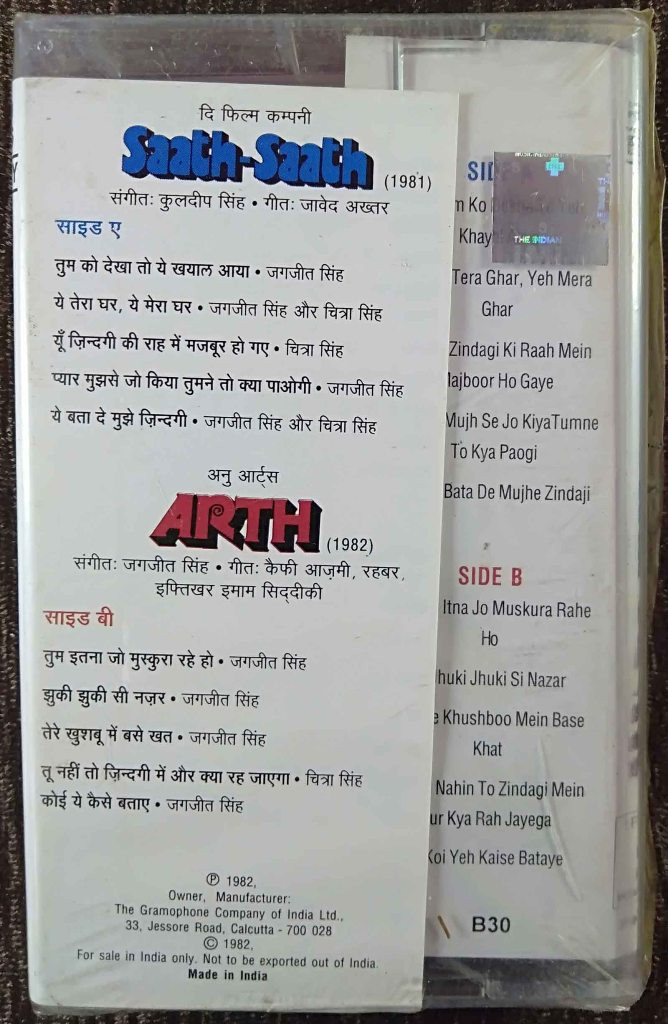 दि फिल्म कम्पनी
Saath-Saath (1981)
संगीतः कुलदीप सिंह • गीतः जावेद अख्तर
साइड ए
तुम को देखा तो ये खयाल आया • जगजीत सिंह
ये तेरा घर, ये मेरा घर • जगजीत सिंह और चित्रा सिंह
यूँ ज़िन्दगी की राह में मजबूर हो गए • चित्रा सिंह
प्यार मुझसे जो किया तुमने तो क्या पाओगी • जगजीत सिंह
ये बता दे मुझे ज़िन्दगी • जगजीत सिंह और चित्रा सिंह
अनु आर्ट्स
ARTH (1982)
संगीतः जगजीत सिंह • गीतः कैफी आज़मी, रहबर,
इफ्तिखर इमाम सिद्दीकी
साइड बी
तुम इतना जो मुस्कुरा रहे हो • जगजीत सिंह
झुकी झुकी सी नज़र • जगजीत सिंह
तेरे खुशबू में बसे खत • जगजीत सिंह
तू नहीं तो ज़िन्दगी में और क्या रह जाएगा • चित्रा सिंह
कोई ये कैसे बताए • जगजीत सिंह
℗ 1982,
Owner, Manufacturer:
The Gramophone Company of India Ltd.,
33, Jessore Road, Calcutta - 700 028
© 1982,
For sale in India only. Not to be exported out of India.
Made in India
Ko
THE INDIAN
Tera Ghar, Yeh Mera
Ghar
Zindagi Ki Raah Mein
Ho Gaye
Mujh Se Jo KiyaTumne
To Kya Paogi
Bata De Mujhe Zindaji
SIDE B
Itna Jo Muskura Rahe
Ho
Jhuki Si Nazar
Khushboo Mein Base
Khat
Nahin To Zindagi Mein
Kya Rah Jayega
Koi Yeh Kaise Bataye
B30